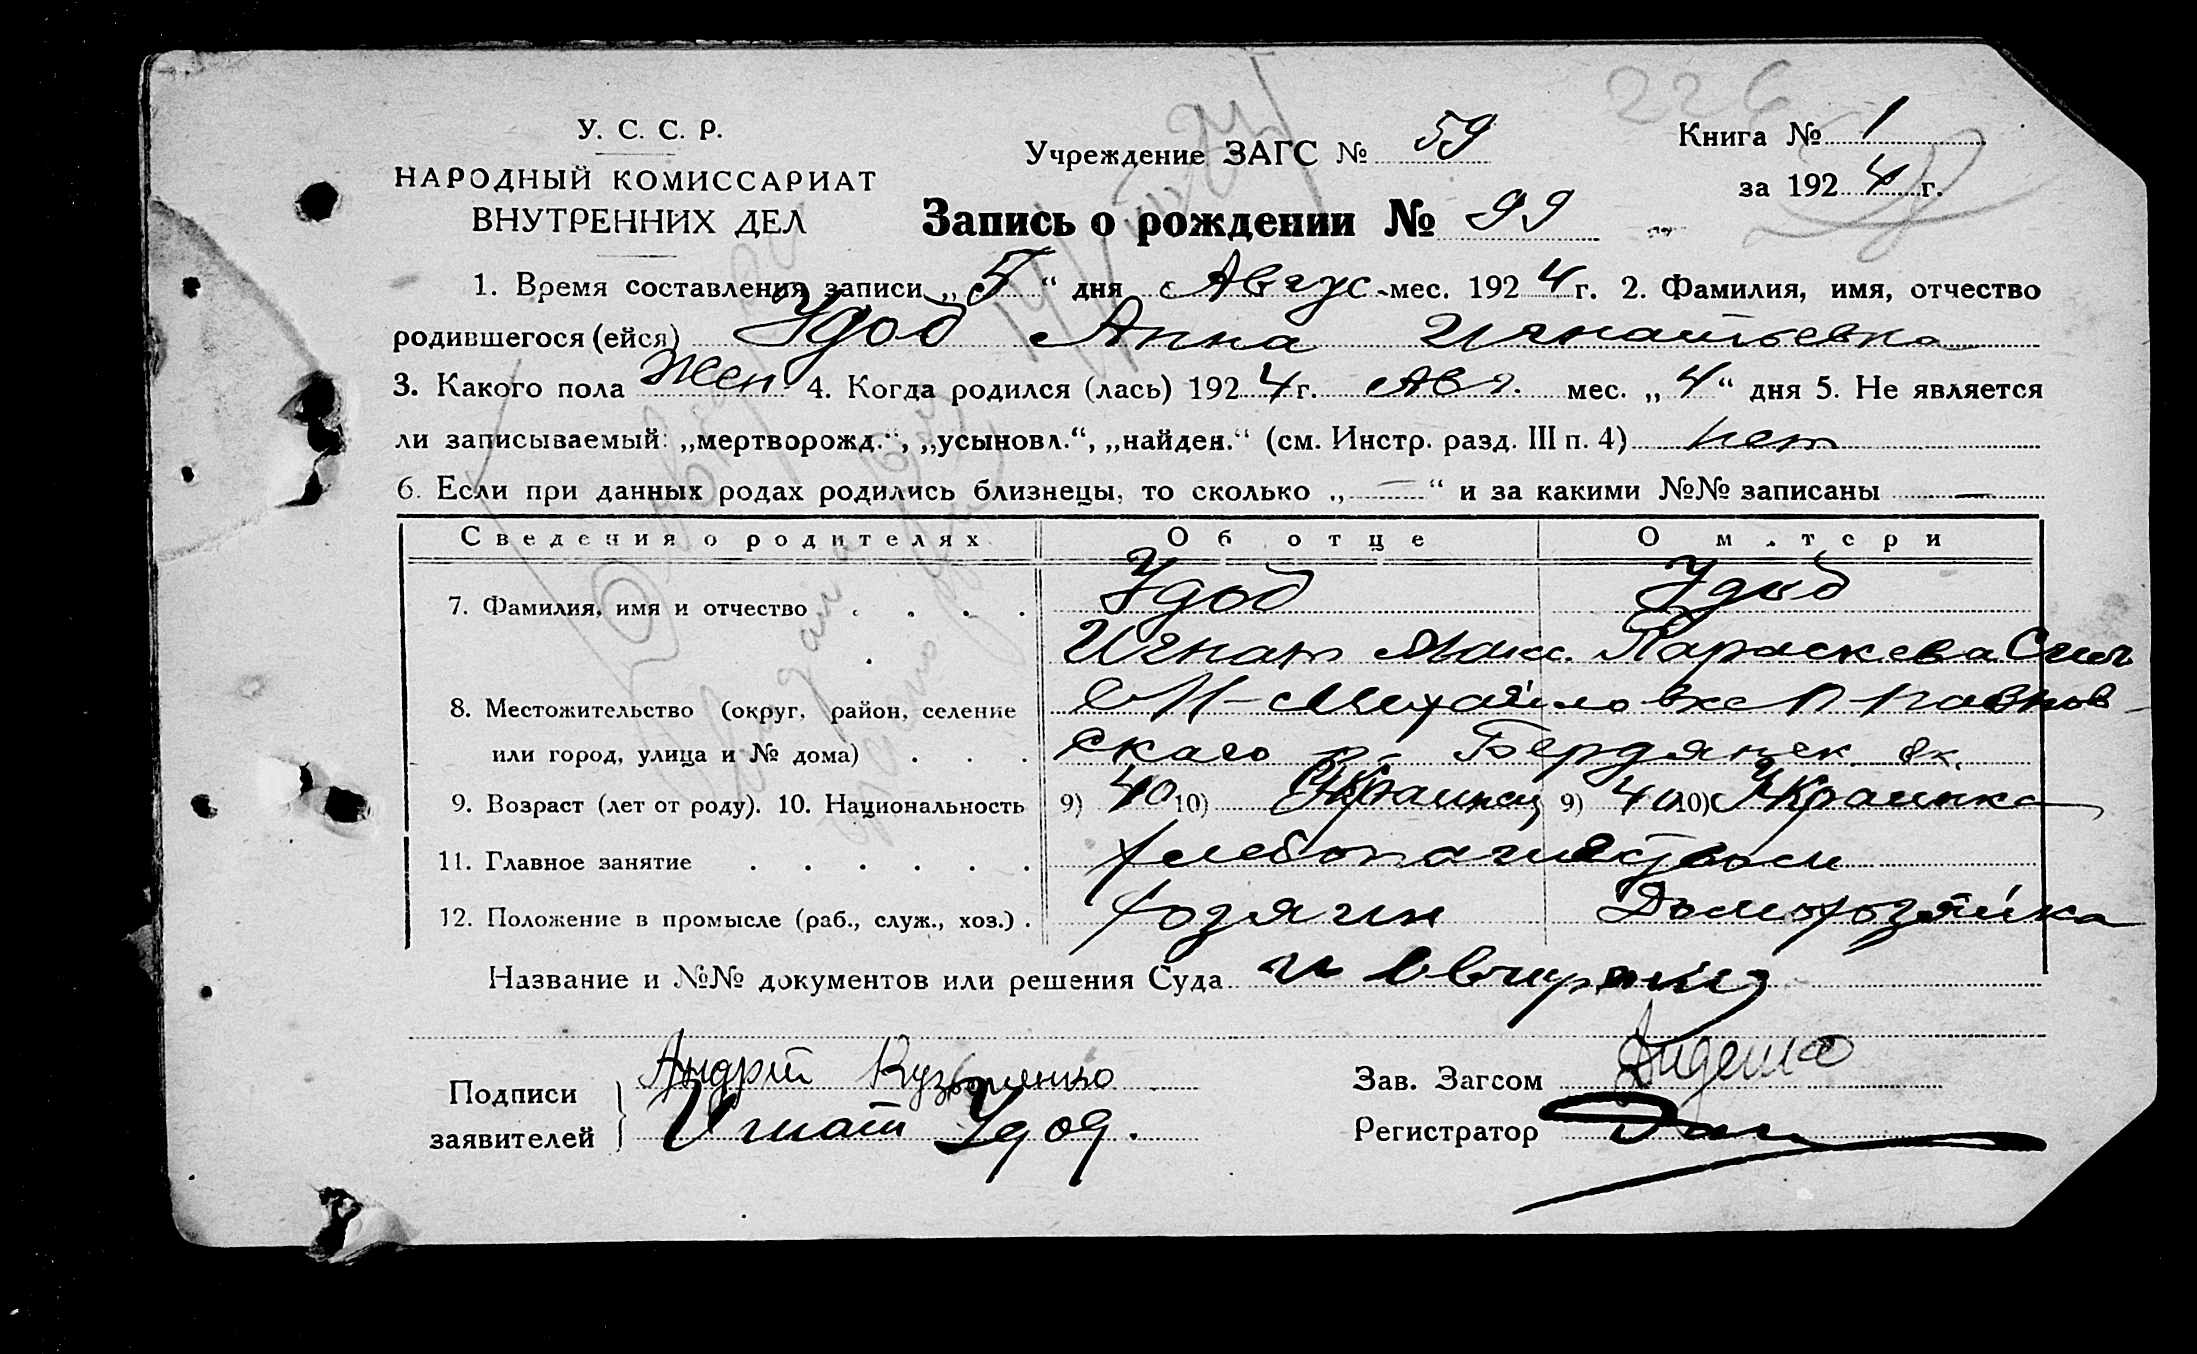 226
У. С. С. Р.
НАРОДНЫЙ КОМИССАРИАТ
ВНУТРЕННИХ ДЕЛ
Учреждение ЗАГС № 59
Книга № 1
за 1924 г.
Запись о рождении № 99
1. Время составления записи „5“ дня Авгус мес. 1924 г. 2. Фамилия, имя, отчество
родившегося (ейся) Удод Анна Игнатьевна
3. Какого пола Жен 4. Когда родился (лась) 1924 г. Авг. мес. „4“ дня 5. Не является
ли записываемый: „мертворожд.“, „усыновл.“, „найден.“ (см. Инстр. разд. III п. 4) нет
6. Если при данных родах родились близнецы, то сколько „—“ и за какими №№ записаны —
Сведения о родителях Об отце О матери
7. Фамилия, имя и отчество . . . . Удод Удод
Игнат Макс. Параскева
8. Местожительство (округ, район, селение Михайловке
или город, улица и № дома) . . . скаго р. Бердянск. ок.
9. Возраст (лет от роду). 10. Национальность 9) 40 10) Украинец 9) 40 10) Украинка
11. Главное занятие . . . . . . хлебопашеством
12. Положение в промысле (раб., служ., хоз.) . Хозяин Домохозяйка
Название и №№ документов или решения Суда
Подписи
заявителей
Андрій Кузьменко
Игнат Удод.
Зав. Загсом
Регистратор